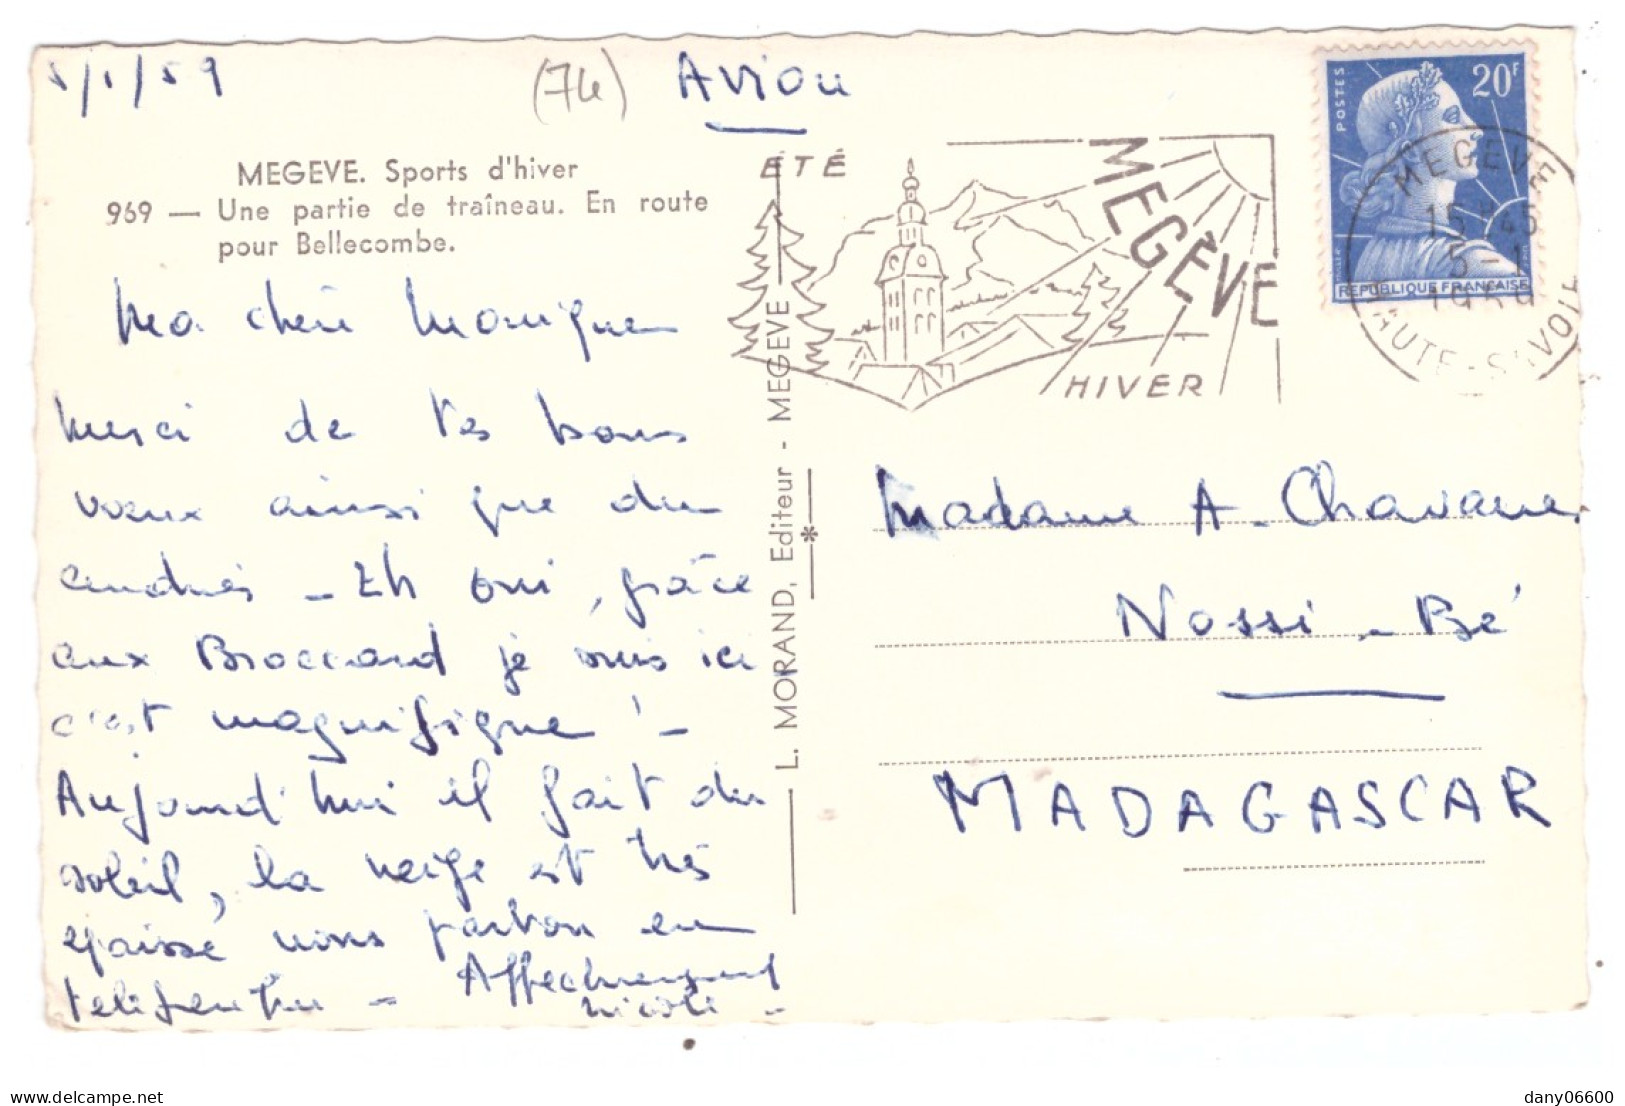 5/1/59
(74)
Avion
MEGEVE. Sports d'hiver
969 — Une partie de traîneau. En route
pour Bellecombe.
Ma chère Monique
merci de tes bons
vœux ainsi que du
andrés - Eh oui, grâce
aux Broccard je suis ici
c'est magnifique ! -
Aujourd'hui il fait du
soleil, la neige est très
épaisse nous partons en
Affectueusement
Nicole -
L. MORAND, Editeur - MEGEVE
ÉTÉ
MEGÈVE
HIVER
POSTES
20F
MULLER
REPUBLIQUE FRANÇAISE
MEGEVE
15H45
5-1
1959
HAUTE-SAVOIE
Madame A. Chavanes
Nossi-Bé
MADAGASCAR
delcampe.net
dany06600